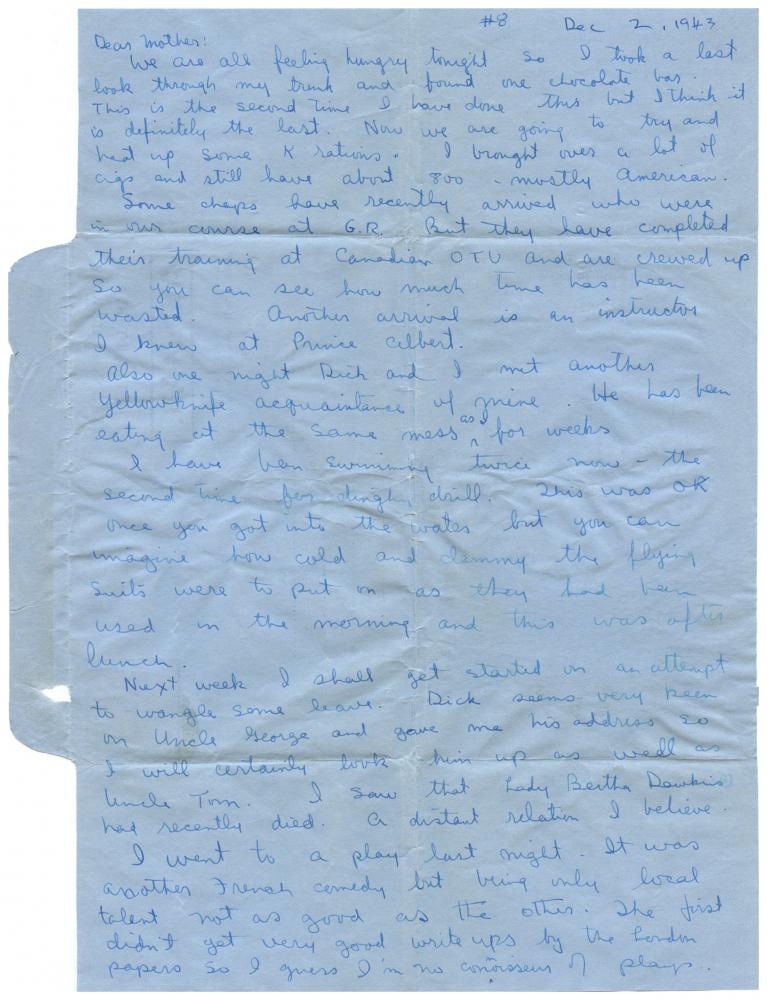 #8 Dec 2, 1943
Dear Mother:
We are all feeling hungry tonight so I took a last
look through my trunk and found one chocolate bar.
This is the second time I have done this but I think it
is definitely the last. Now we are going to try and
heat up some K rations. I brought over a lot of
cigs and still have about 800 - mostly American.
Some chaps have recently arrived who were
in our course at G.R. But they have completed
their training at Canadian OTU and are crewed up
So you can see how much time has been
wasted. Another arrival is an instructor
I knew at Prince Albert.
Also one night Dick and I met another
Yellowknife acquaintance of mine. He has been
eating at the same mess as I for weeks
I have been swimming twice now - the
second time for dinghy drill. This was OK
once you got into the water but you can
imagine how cold and clammy the flying
suits were to put on as they had been
used in the morning and this was after
lunch.
Next week I shall get started on an attempt
to wangle some leave. Dick seems very keen
on Uncle George and gave me his address so
I will certainly look him up as well as
Uncle Tom. I saw that Lady Bertha Dawkins
had recently died. A distant relation I believe.
I went to a play last night. It was
another French comedy but being only local
talent not as good as the other. The first
didn't get very good write ups by the London
papers so I guess I'm no connoisseur of plays.